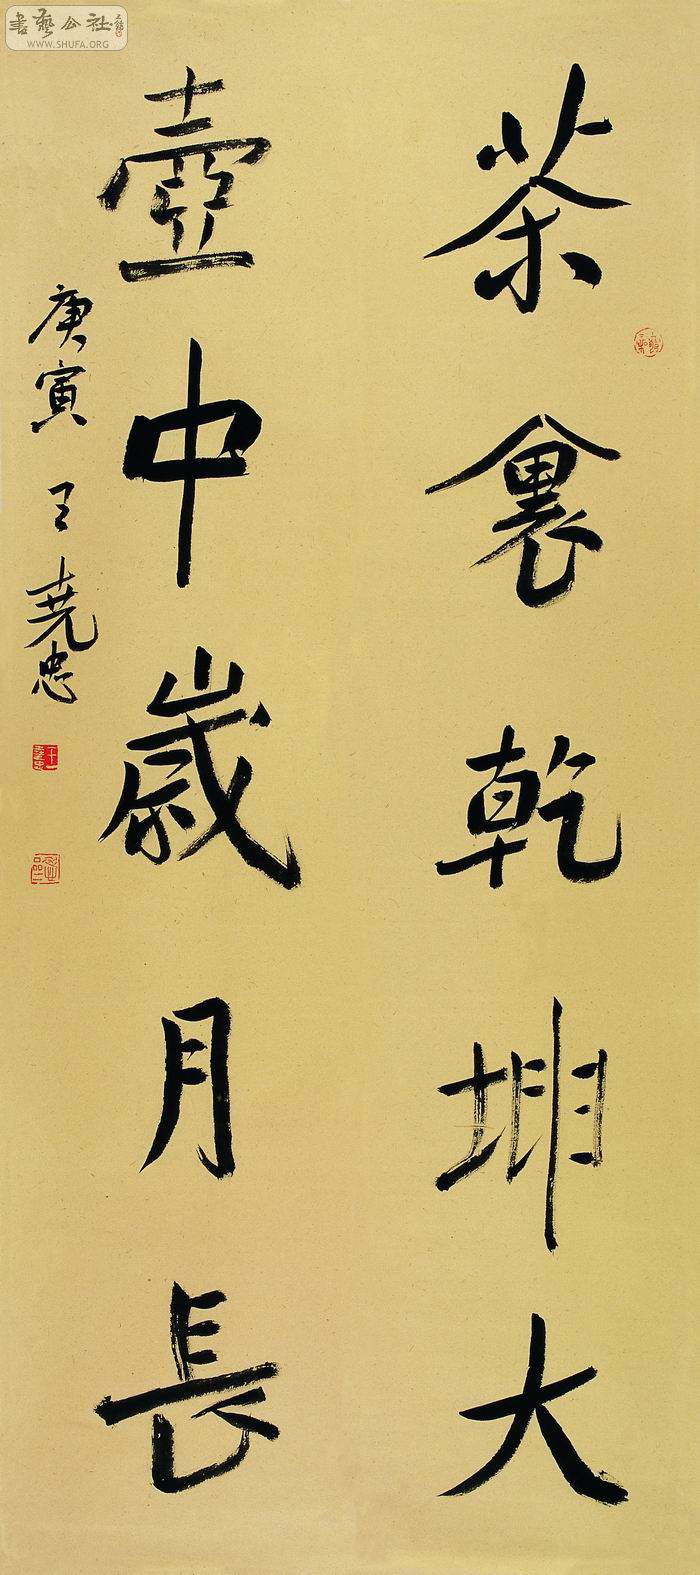 茶裏乾坤大
壺中歲月長
庚寅 王堯忠
書藝公社
WWW.SHUFA.ORG